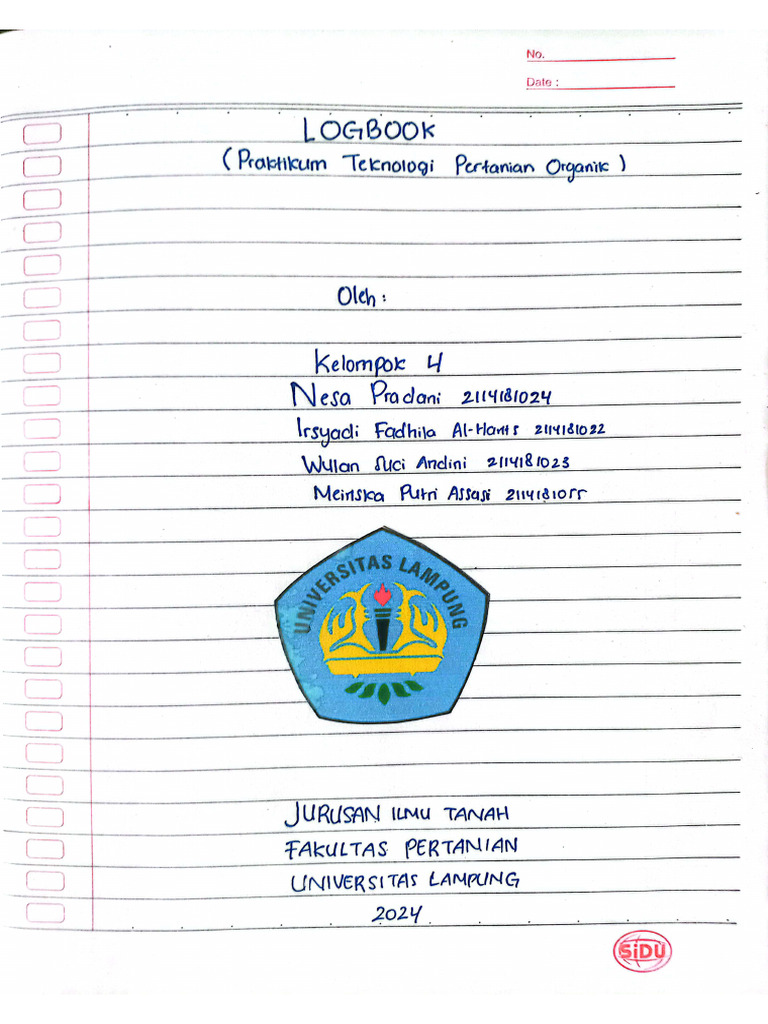 No.
Date :
LOGBOOK
(Praktikum Teknologi Pertanian Organik)
Oleh :
Kelompok 4
Nesa Pradani 2114181024
Irsyadi Fadhila Al-Harits 2114181022
Wulan Suci Andini 2114181023
Meinska Putri Assasi 2114181055
UNIVERSITAS LAMPUNG
JURUSAN ILMU TANAH
FAKULTAS PERTANIAN
UNIVERSITAS LAMPUNG
2024
SiDU